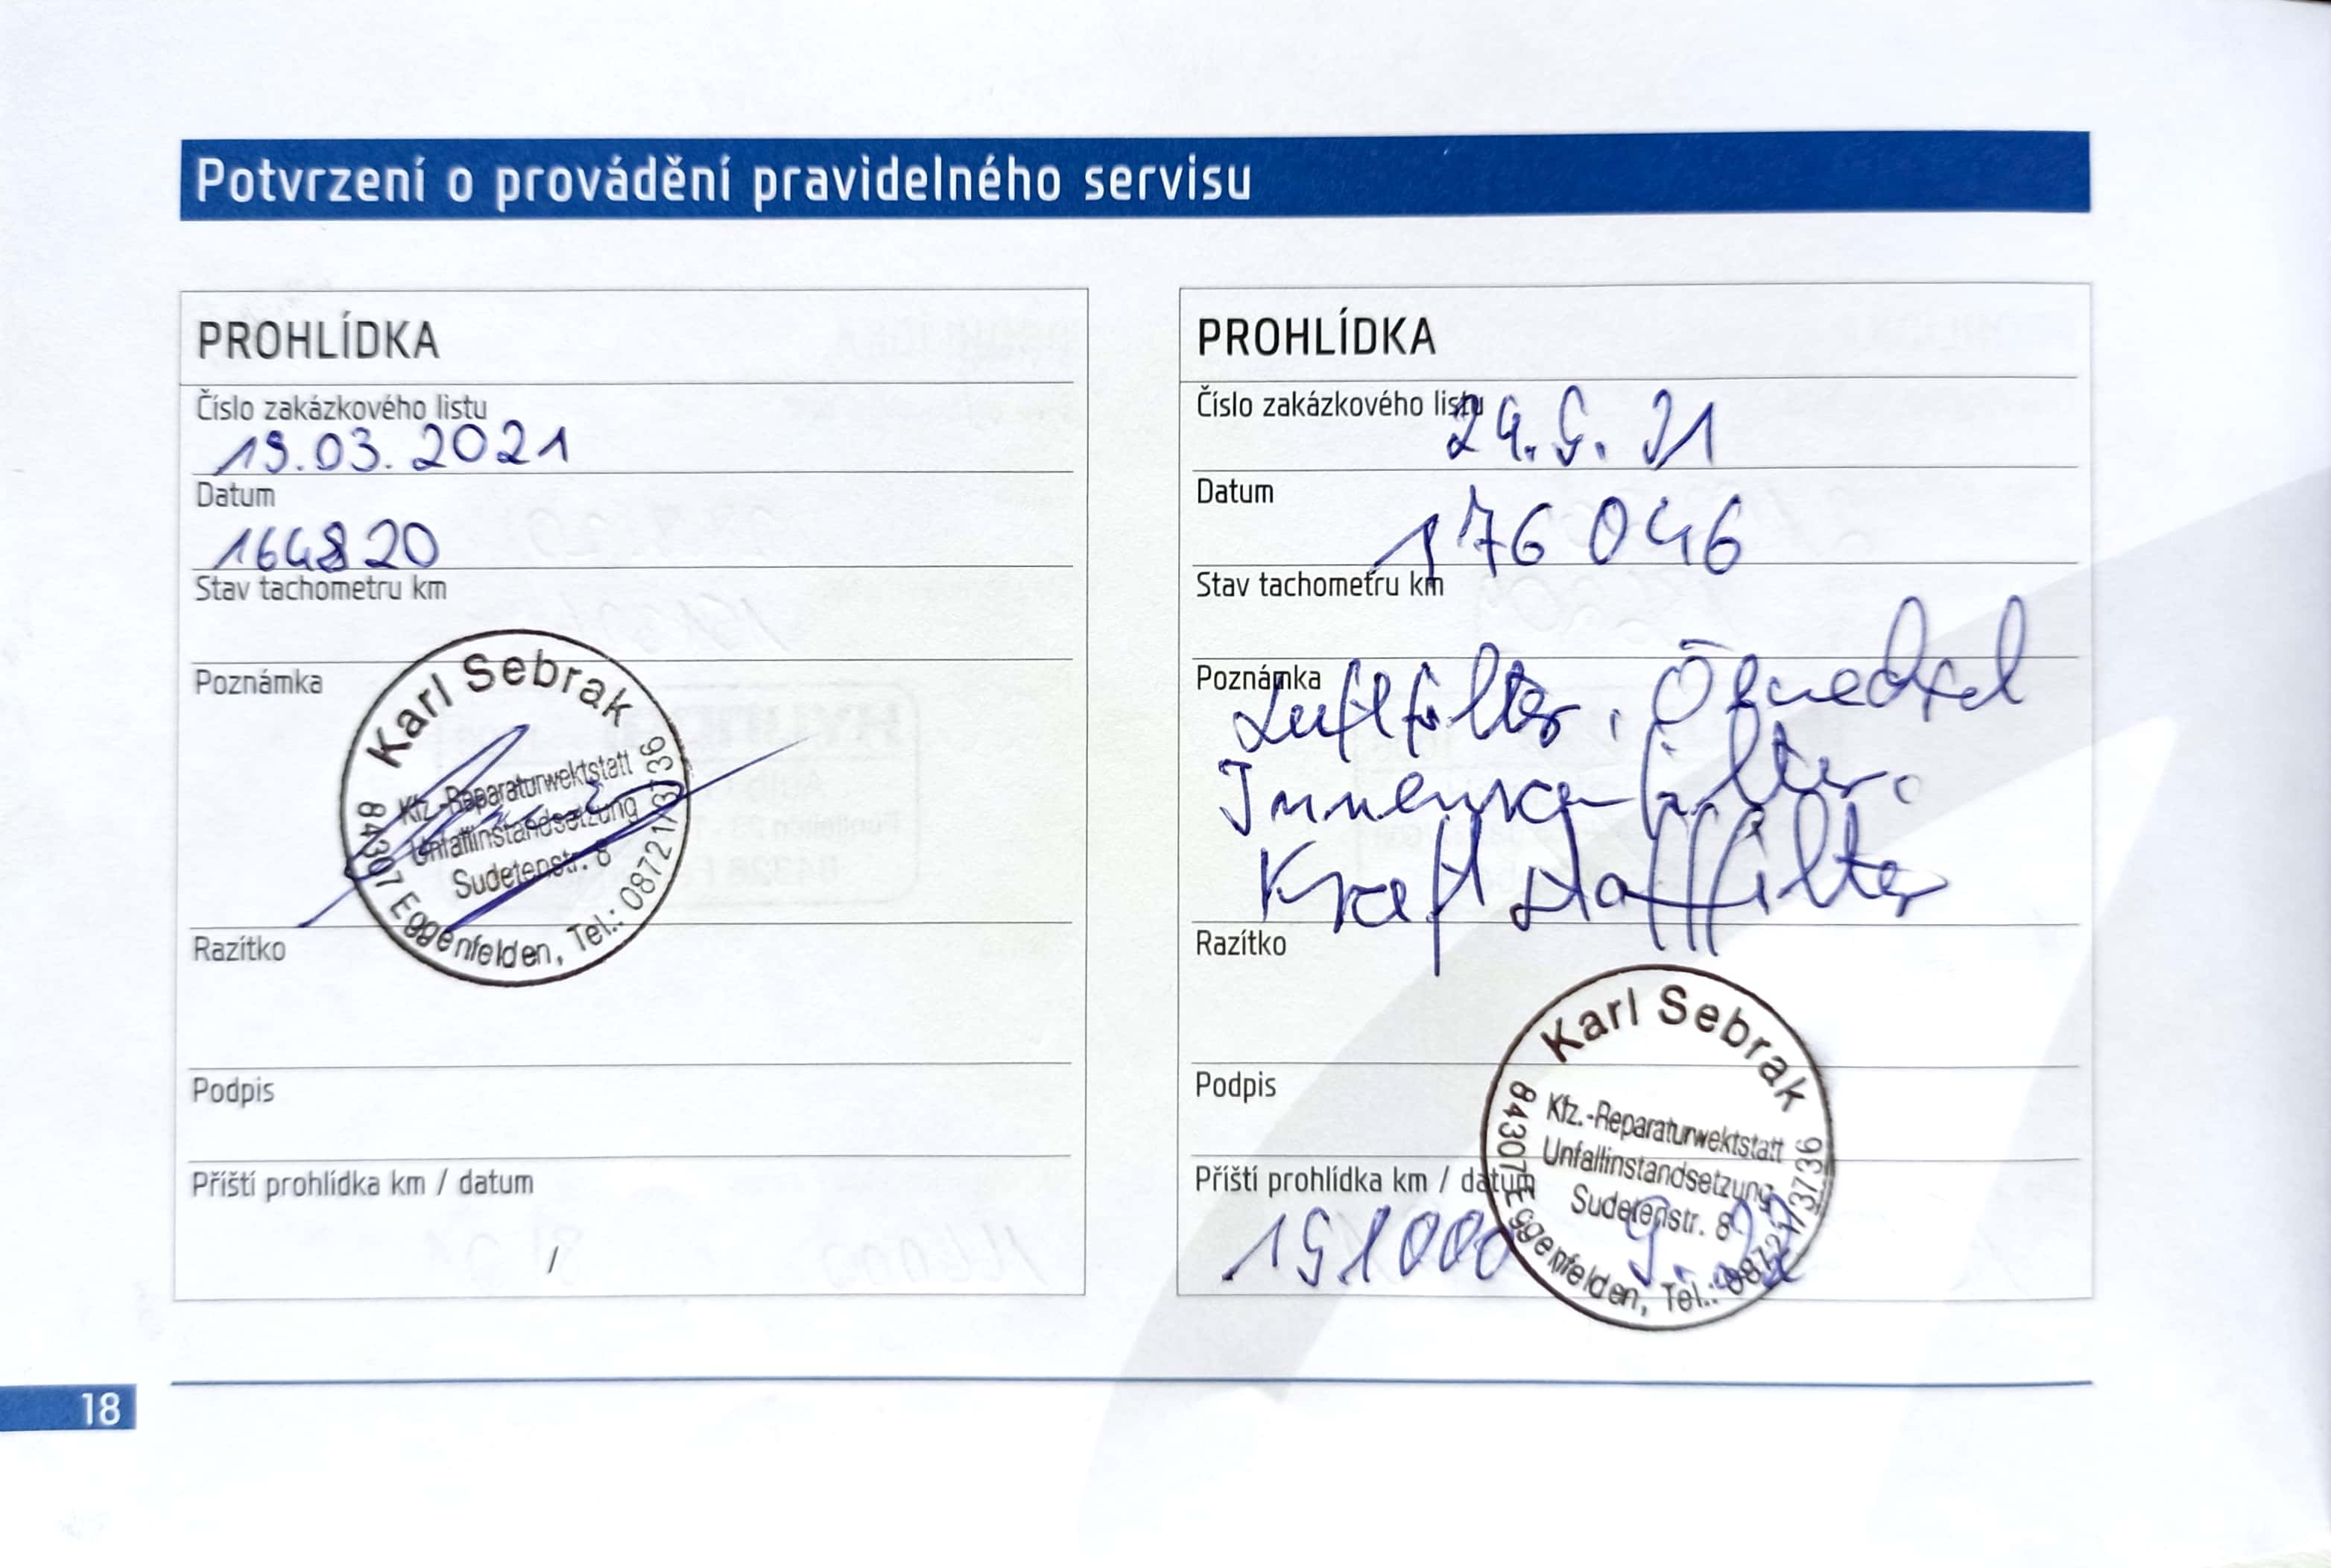 Potvrzení o provádění pravidelného servisu
PROHLÍDKA
Číslo zakázkového listu
19.03.2021
Datum
164820
Stav tachometru km
Poznámka
Karl Sebrak
Kfz.-Reparaturwektstatt
Unfallinstandsetzung
Sudetenstr. 8
84307 Eggenfelden, Tel.: 08721/3736
Razítko
Podpis
Příští prohlídka km / datum
/
PROHLÍDKA
Číslo zakázkového listu
24.9.21
Datum
176046
Stav tachometru km
Poznámka
Luftfilter, Ölwechsel
Innenraumfilter,
Kraftstofffilter
Razítko
Karl Sebrak
Kfz.-Reparaturwektstatt
Unfallinstandsetzung
Sudetenstr. 8
84307 Eggenfelden, Tel.: 08721/3736
Podpis
Příští prohlídka km / datum
191000
18